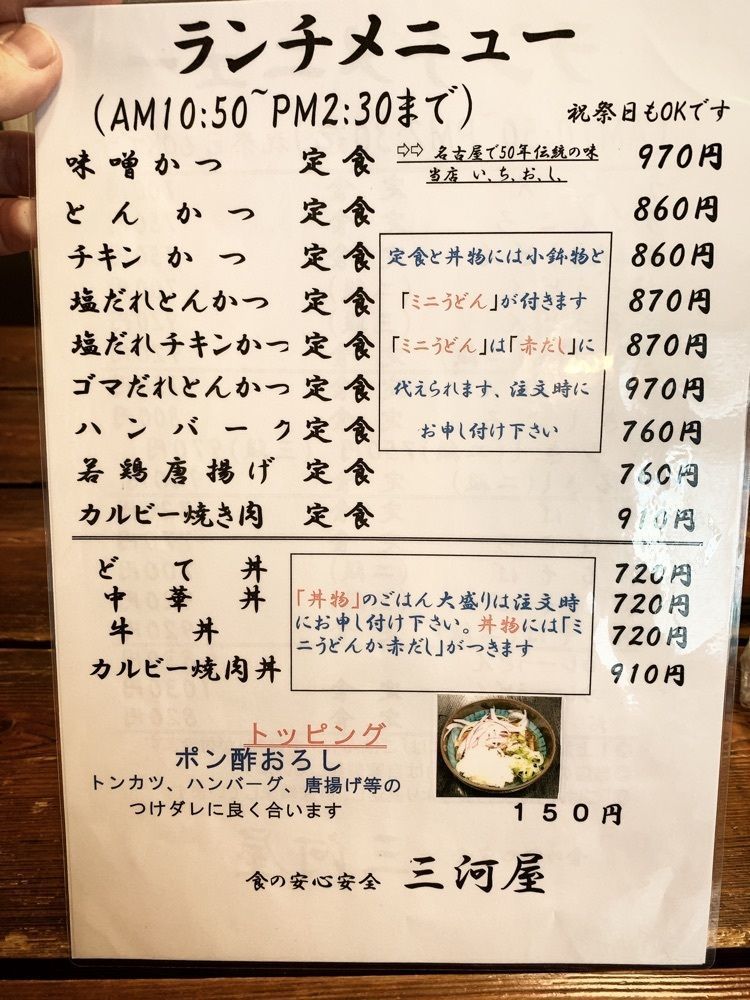 ランチメニュー
(AM10:50~PM2:30まで) 祝祭日もOKです
味噌かつ 定食 ⇨⇨ 名古屋で50年伝統の味 970円
当店 い、ち、お、し、
とんかつ 定食 860円
チキンかつ 定食 860円
塩だれとんかつ 定食 870円
塩だれチキンかつ 定食 870円
ゴマだれとんかつ 定食 970円
ハンバーク 定食 760円
若鶏唐揚げ 定食 760円
カルビー焼き肉 定食 910円
定食と丼物には小鉢物と
「ミニうどん」が付きます
「ミニうどん」は「赤だし」に
代えられます、注文時に
お申し付け下さい
どて丼 720円
中華丼 720円
牛丼 720円
カルビー焼肉丼 910円
「丼物」のごはん大盛りは注文時
にお申し付け下さい。丼物には「ミ
ニうどんか赤だし」がつきます
トッピング
ポン酢おろし
トンカツ、ハンバーグ、唐揚げ等の
つけダレに良く合います
150円
食の安心安全 三河屋